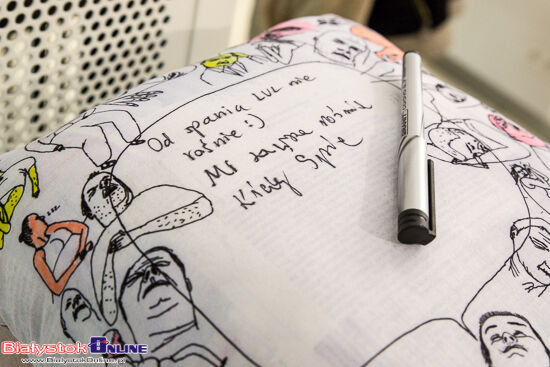 Od spania LVL nie
rośnie :)
Mi zawsze rośnie
Kiedy Śpię
Białystok ONLINE
www.BialystokOnline.pl